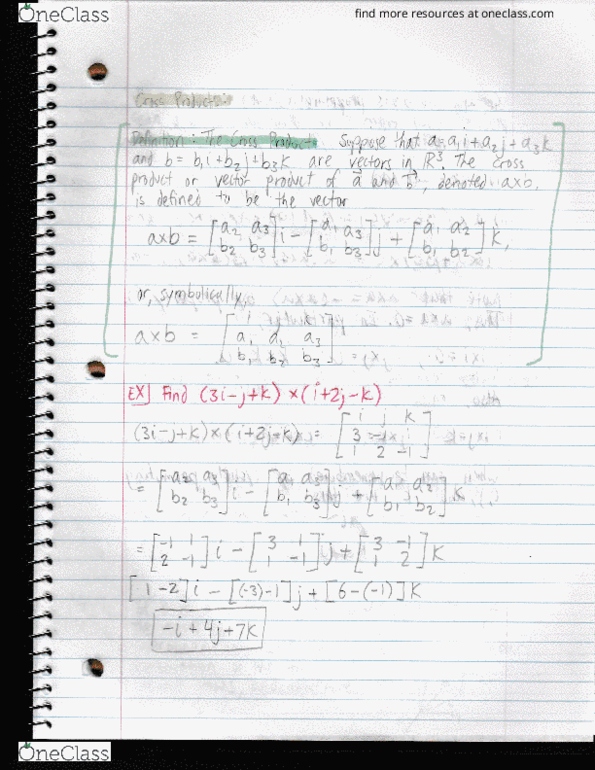 OneClass
find more resources at oneclass.com
Cross Product:
Definition: The Cross Product: Suppose that a=a₁i+a₂j+a₃k
and b= b₁i+b₂j+b₃k are vectors in R³. The cross
product or vector product of a⃗ and b⃗, denoted axb,
is defined to be the vector
axb = [a₂ a₃ b₂ b₃]i - [a₁ a₃ b₁ b₃]j + [a₁ a₂ b₁ b₂]k,
or, symbolically,
axb = [i j k a₁ a₂ a₃ b₁ b₂ b₃]
EX] Find (3i-j+k) x (i+2j-k)
(3i-j+k) x (i+2j-k) = [i j k 3 -1 1 1 2 -1]
= [a₂ a₃ b₂ b₃]i - [a₁ a₃ b₁ b₃]j + [a₁ a₂ b₁ b₂]k
= [-1 1 2 -1]i - [3 1 1 -1]j + [3 -1 1 2]k
[1-2]i - [(-3)-1]j + [6-(-1)]k
-i + 4j + 7k
OneClass